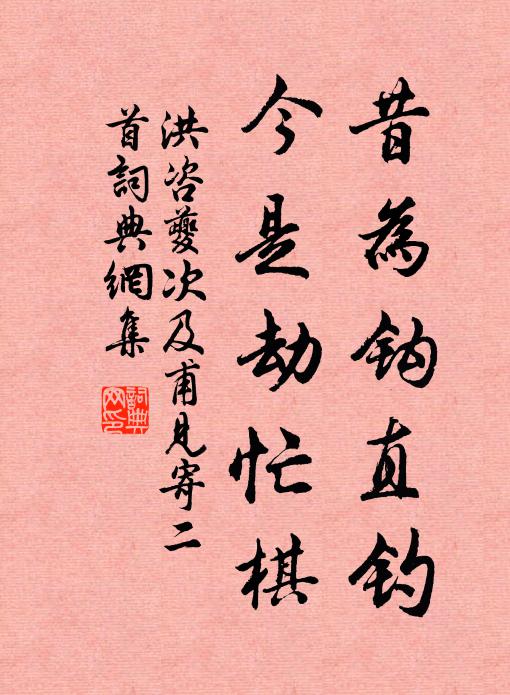 昔為鈎直釣
今是劫忙棋
洪咨夔次及甫見寄二
首詞典網集
詞典
网印